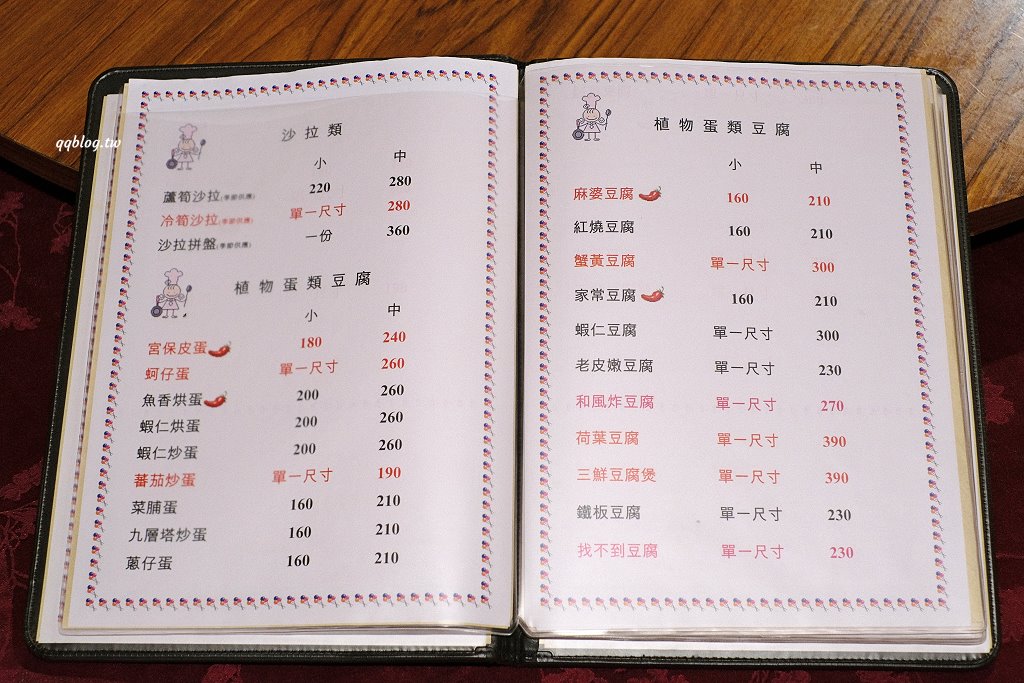 qqblog.tw
沙拉類
小 中
蘆筍沙拉(季節供應) 220 280
冷筍沙拉(季節供應) 單一尺寸 280
沙拉拼盤(季節供應) 一份 360
植物蛋類豆腐
小 中
宮保皮蛋 180 240
蚵仔蛋 單一尺寸 260
魚香烘蛋 200 260
蝦仁烘蛋 200 260
蝦仁炒蛋 200 260
蕃茄炒蛋 單一尺寸 190
菜脯蛋 160 210
九層塔炒蛋 160 210
蔥仔蛋 160 210
植物蛋類豆腐
小 中
麻婆豆腐 160 210
紅燒豆腐 160 210
蟹黃豆腐 單一尺寸 300
家常豆腐 160 210
蝦仁豆腐 單一尺寸 300
老皮嫩豆腐 單一尺寸 230
和風炸豆腐 單一尺寸 270
荷葉豆腐 單一尺寸 390
三鮮豆腐煲 單一尺寸 390
鐵板豆腐 單一尺寸 230
找不到豆腐 單一尺寸 230